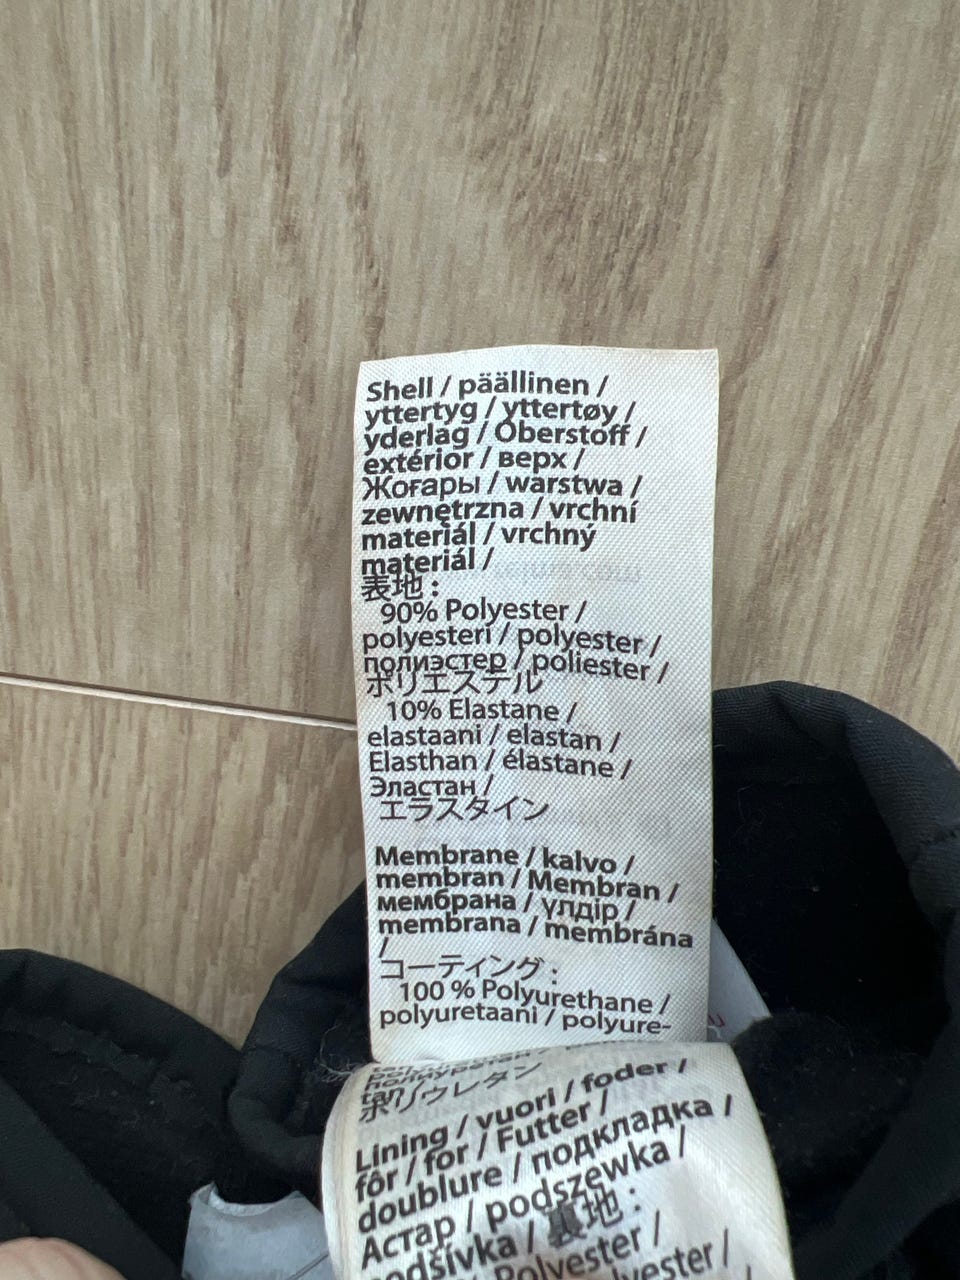 Shell / päällinen /
yttertyg / yttertøy /
yderlag / Oberstoff /
extérior / верх /
Жоғары / warstwa /
zewnętrzna / vrchní
materiál / vrchný
materiál /
表地 :
90% Polyester /
polyesteri / polyester /
полиэстер / poliester /
ポリエステル
10% Elastane /
elastaani / elastan /
Elasthan / élastane /
Эластан /
エラスタイン
Membrane / kalvo /
membran / Membran /
мембрана / үлдір /
membrana / membrána
/
コーティング :
100 % Polyurethane /
polyuretaani / polyure-
ポリウレタン
Lining / vuori / foder /
fôr / for / Futter /
doublure / подкладка /
Астар / podszewka /
podšívka / 裏地 :
Polyester /